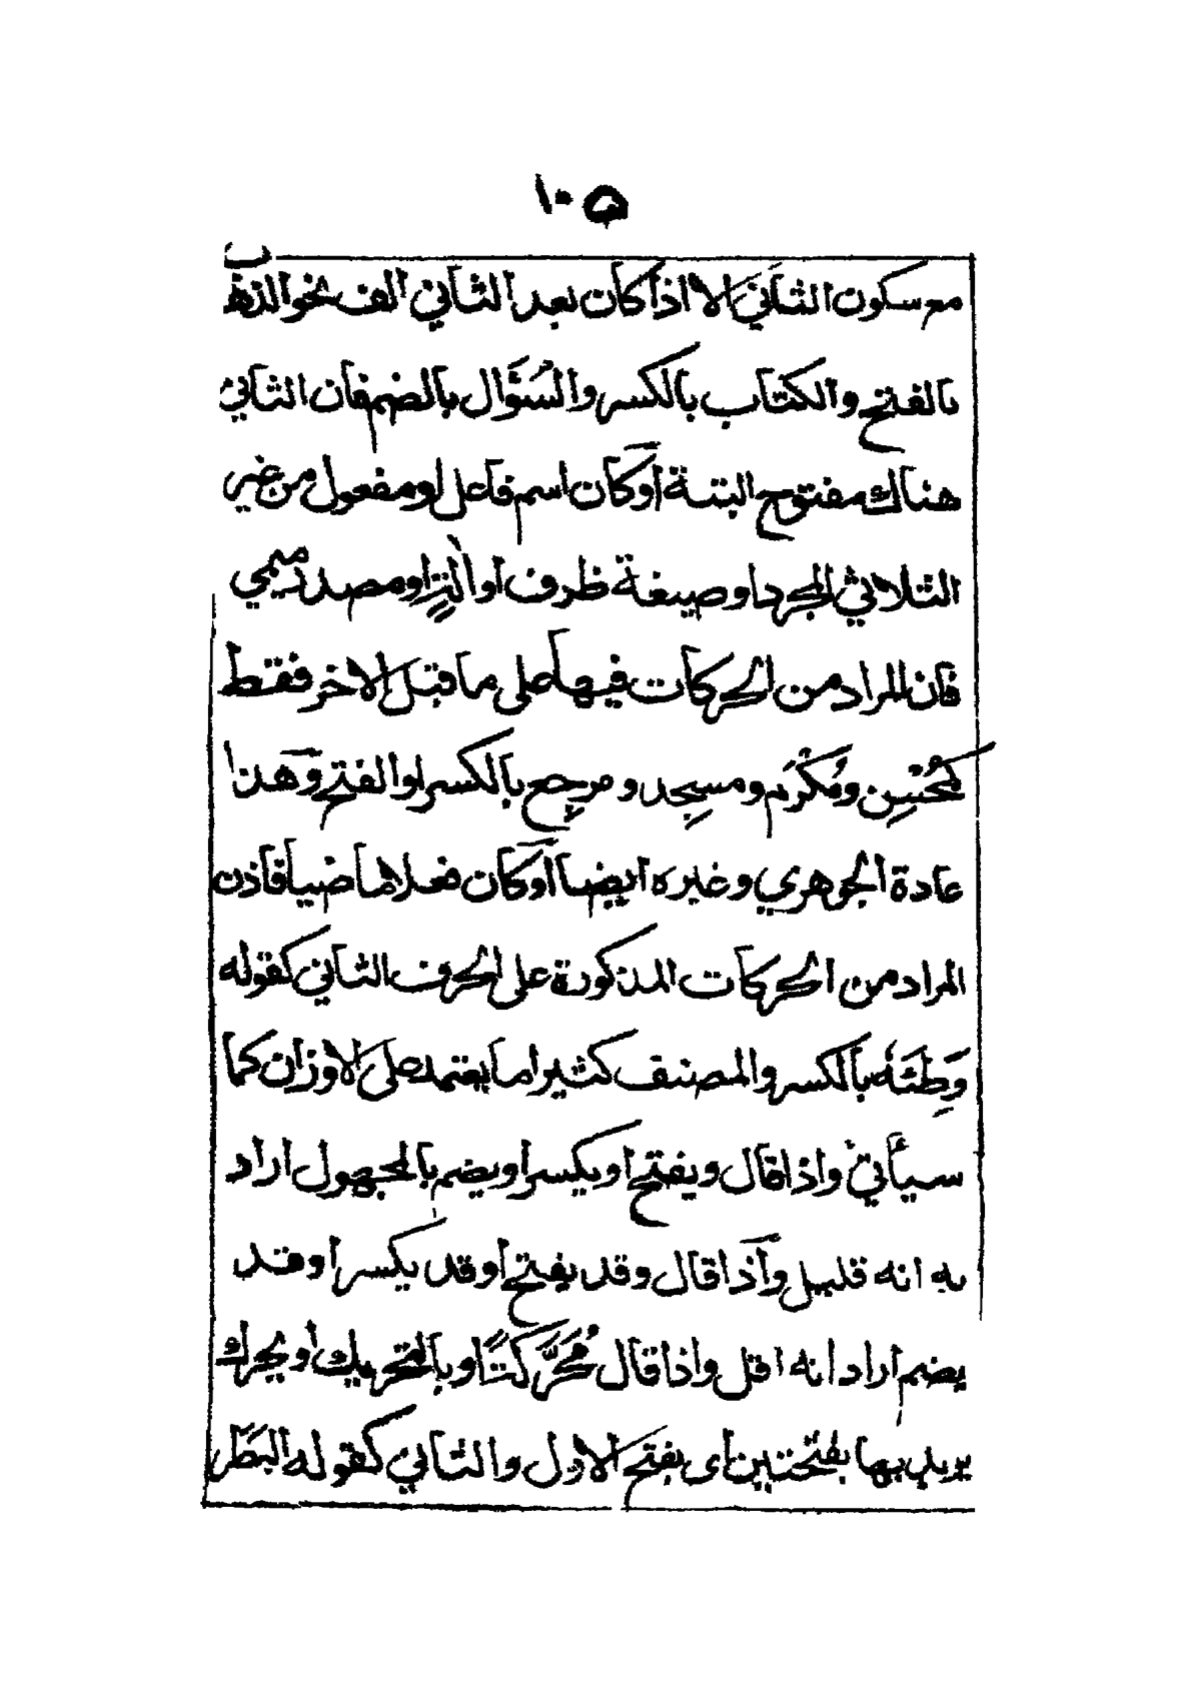 ١٠٥
مع سكون الثاني الا اذا كان بعد الثاني الف نحو الذهاب
بالفتح والكتاب بالكسر والسُؤَال بالضم فان الثاني
هناك مفتوح البتة او كان اسم فاعل او مفعول من غير
الثلاثي المجرد او صيغة ظرف او الة او مصدر ميمي
فان المراد من الحركات فيها على ما قبل الاخر فقط
كمُحْسِن ومُكْرَم ومسجِد ومرجِع بالكسر او الفتح وهذا
عادة الجوهري وغيره ايضا او كان فعلا ماضيا فاذن
المراد من الحركات المذكورة على الحرف الثاني كقوله
وَطِئَهُ بالكسر والمصنف كثيرا ما يعتمد على الاوزان كما
سيأتي واذا قال ويفتح او يكسر او يضم بالمجهول اراد
به انه قليل واذا قال وقد يفتح او قد يكسر او قد
يضم اراد انه اقل واذا قال مُحَرَّكَةً او بالتحريك او يحرك
يريد بها بفتحتين اى بفتح الاول والثاني كقوله البَطَر